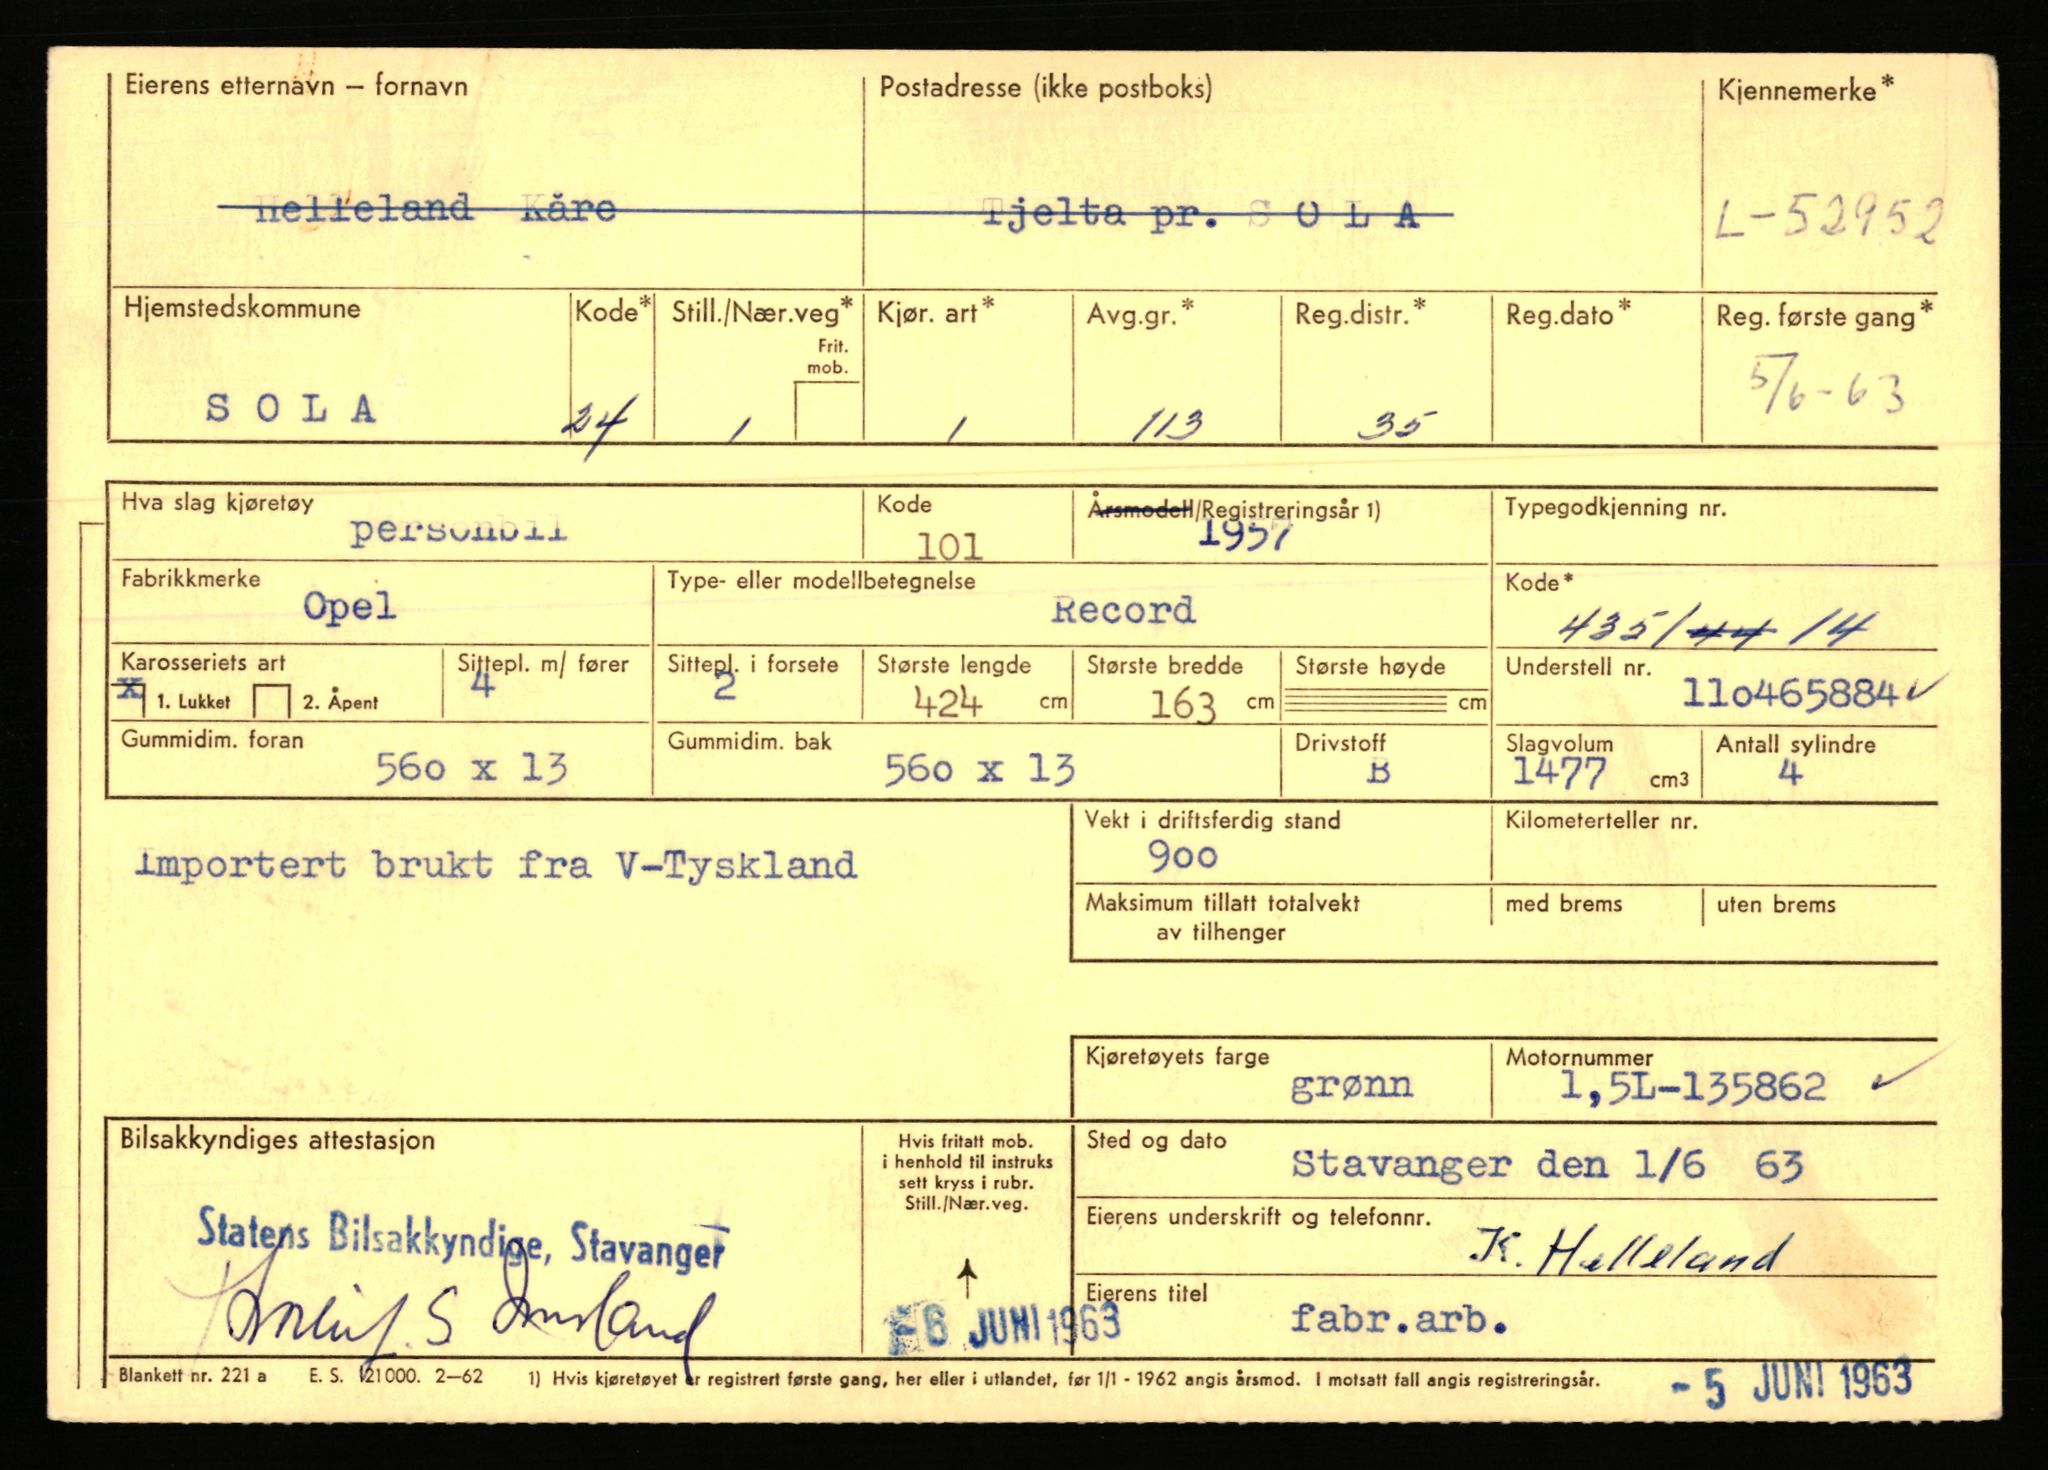 Eierens etternavn – fornavn Postadresse (ikke postboks) Kjennemerke*
Helleland Kåre Tjelta pr. S O L A L-52952
Hjemstedskommune Kode* Still./Nær.veg* Kjør. art* Avg.gr.* Reg.distr.* Reg.dato* Reg. første gang*
Frit. mob.
S O L A 24 1 1 113 35 5/6-63
Hva slag kjøretøy Kode Årsmodell/Registreringsår 1) Typegodkjenning nr.
personbil 101 1957
Fabrikkmerke Type- eller modellbetegnelse Kode*
Opel Record 435/44 14
Karosseriets art Sittepl. m/ fører Sittepl. i forsete Største lengde Største bredde Største høyde Understell nr.
x 1. Lukket 2. Åpent 4 2 424 cm 163 cm cm 110465884 ✓
Gummidim. foran Gummidim. bak Drivstoff Slagvolum Antall sylindre
560 x 13 560 x 13 B 1477 cm3 4
Vekt i driftsferdig stand Kilometerteller nr.
900
Importert brukt fra V-Tyskland
Maksimum tillatt totalvekt med brems uten brems
av tilhenger
Kjøretøyets farge Motornummer
grønn 1,5L-135862 ✓
Bilsakkyndiges attestasjon
Statens Bilsakkyndige, Stavanger
Hvis fritatt mob.
i henhold til instruks
sett kryss i rubr.
Still./Nær.veg.
Sted og dato
Stavanger den 1/6 63
Eierens underskrift og telefonnr.
K. Helleland
Eierens titel
fabr.arb.
- 6 JUNI 1963
Blankett nr. 221 a E. S. 121000. 2–62 1) Hvis kjøretøyet er registrert første gang, her eller i utlandet, før 1/1 - 1962 angis årsmod. I motsatt fall angis registreringsår.
- 5 JUNI 1963